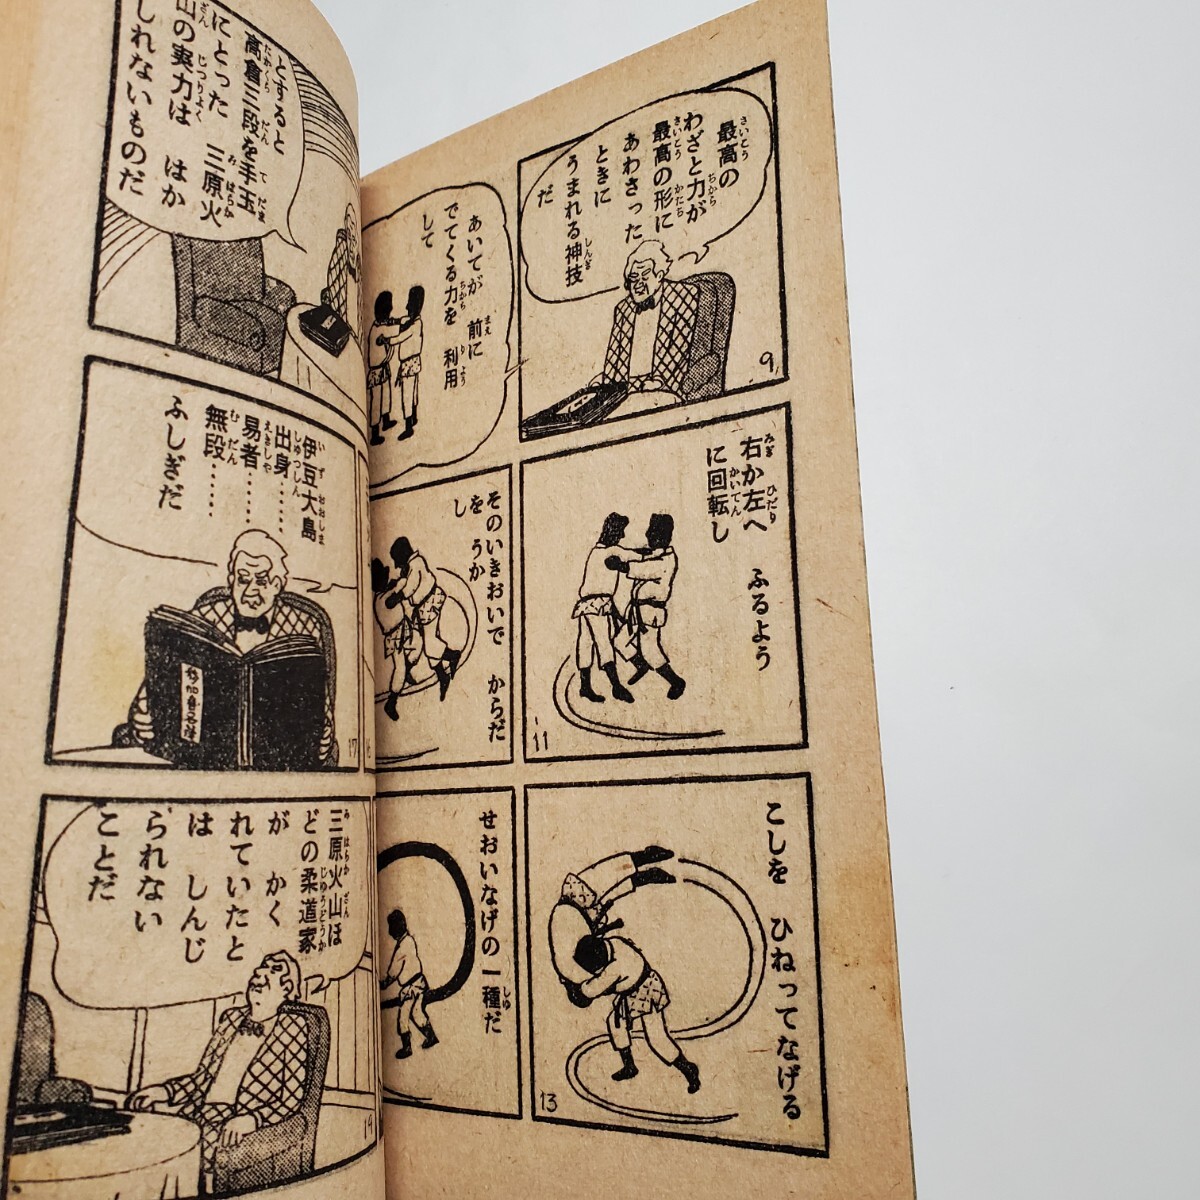 最高の
わざと力が
最高の形に
あわさった
ときに
うまれる神技
だ
9
あいてが 前に
でてくる力を 利用
して
右か左へ ふるよう
に回転し
11
そのいきおいで からだ
を うか
し
こしを ひねってなげる
13
せおいなげの一種だ
とすると
高倉三段を手玉
にとった 三原火
山の実力は はか
しれないものだ
伊豆大島
出身……
易者……
無段……
ふしぎだ
17
三原火山ほ
どの柔道家
が かく
れていたと
は しんじ
られない
ことだ
19